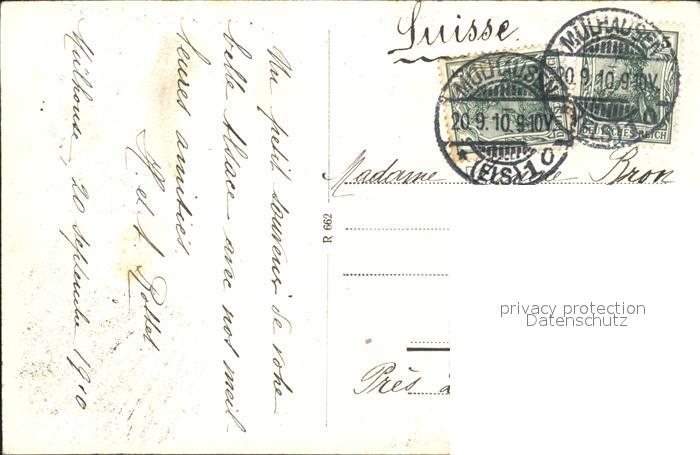 Un petit souvenir de votre
belle Alsace avec nos meil-
leures amitiés.
Mulhouse, 20 septembre 1910
Suisse.
MÜLHAUSEN
20.9.10.9-10V.
*(ELS)1 o
MÜLHAUSEN
20.9.10.9-10V.
DEUTSCHES REICH
Madame Bron
R 662
Près
privacy protection
Datenschutz